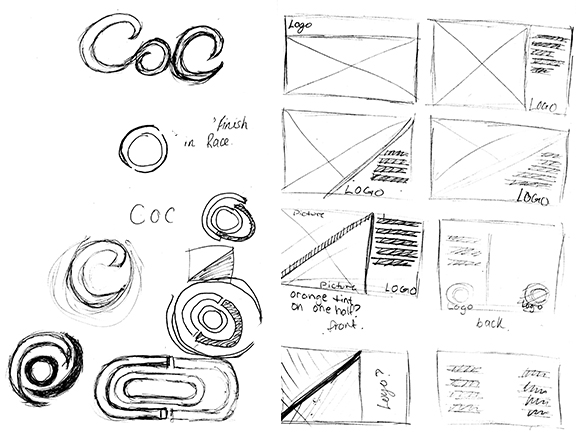 CoC
'Finish
in Race.
COC
C
Logo
LOGO
LOGO
LOGO
Picture
Picture
LOGO
orange tint
on one half?
front.
Logo
Logo
back
Logo?